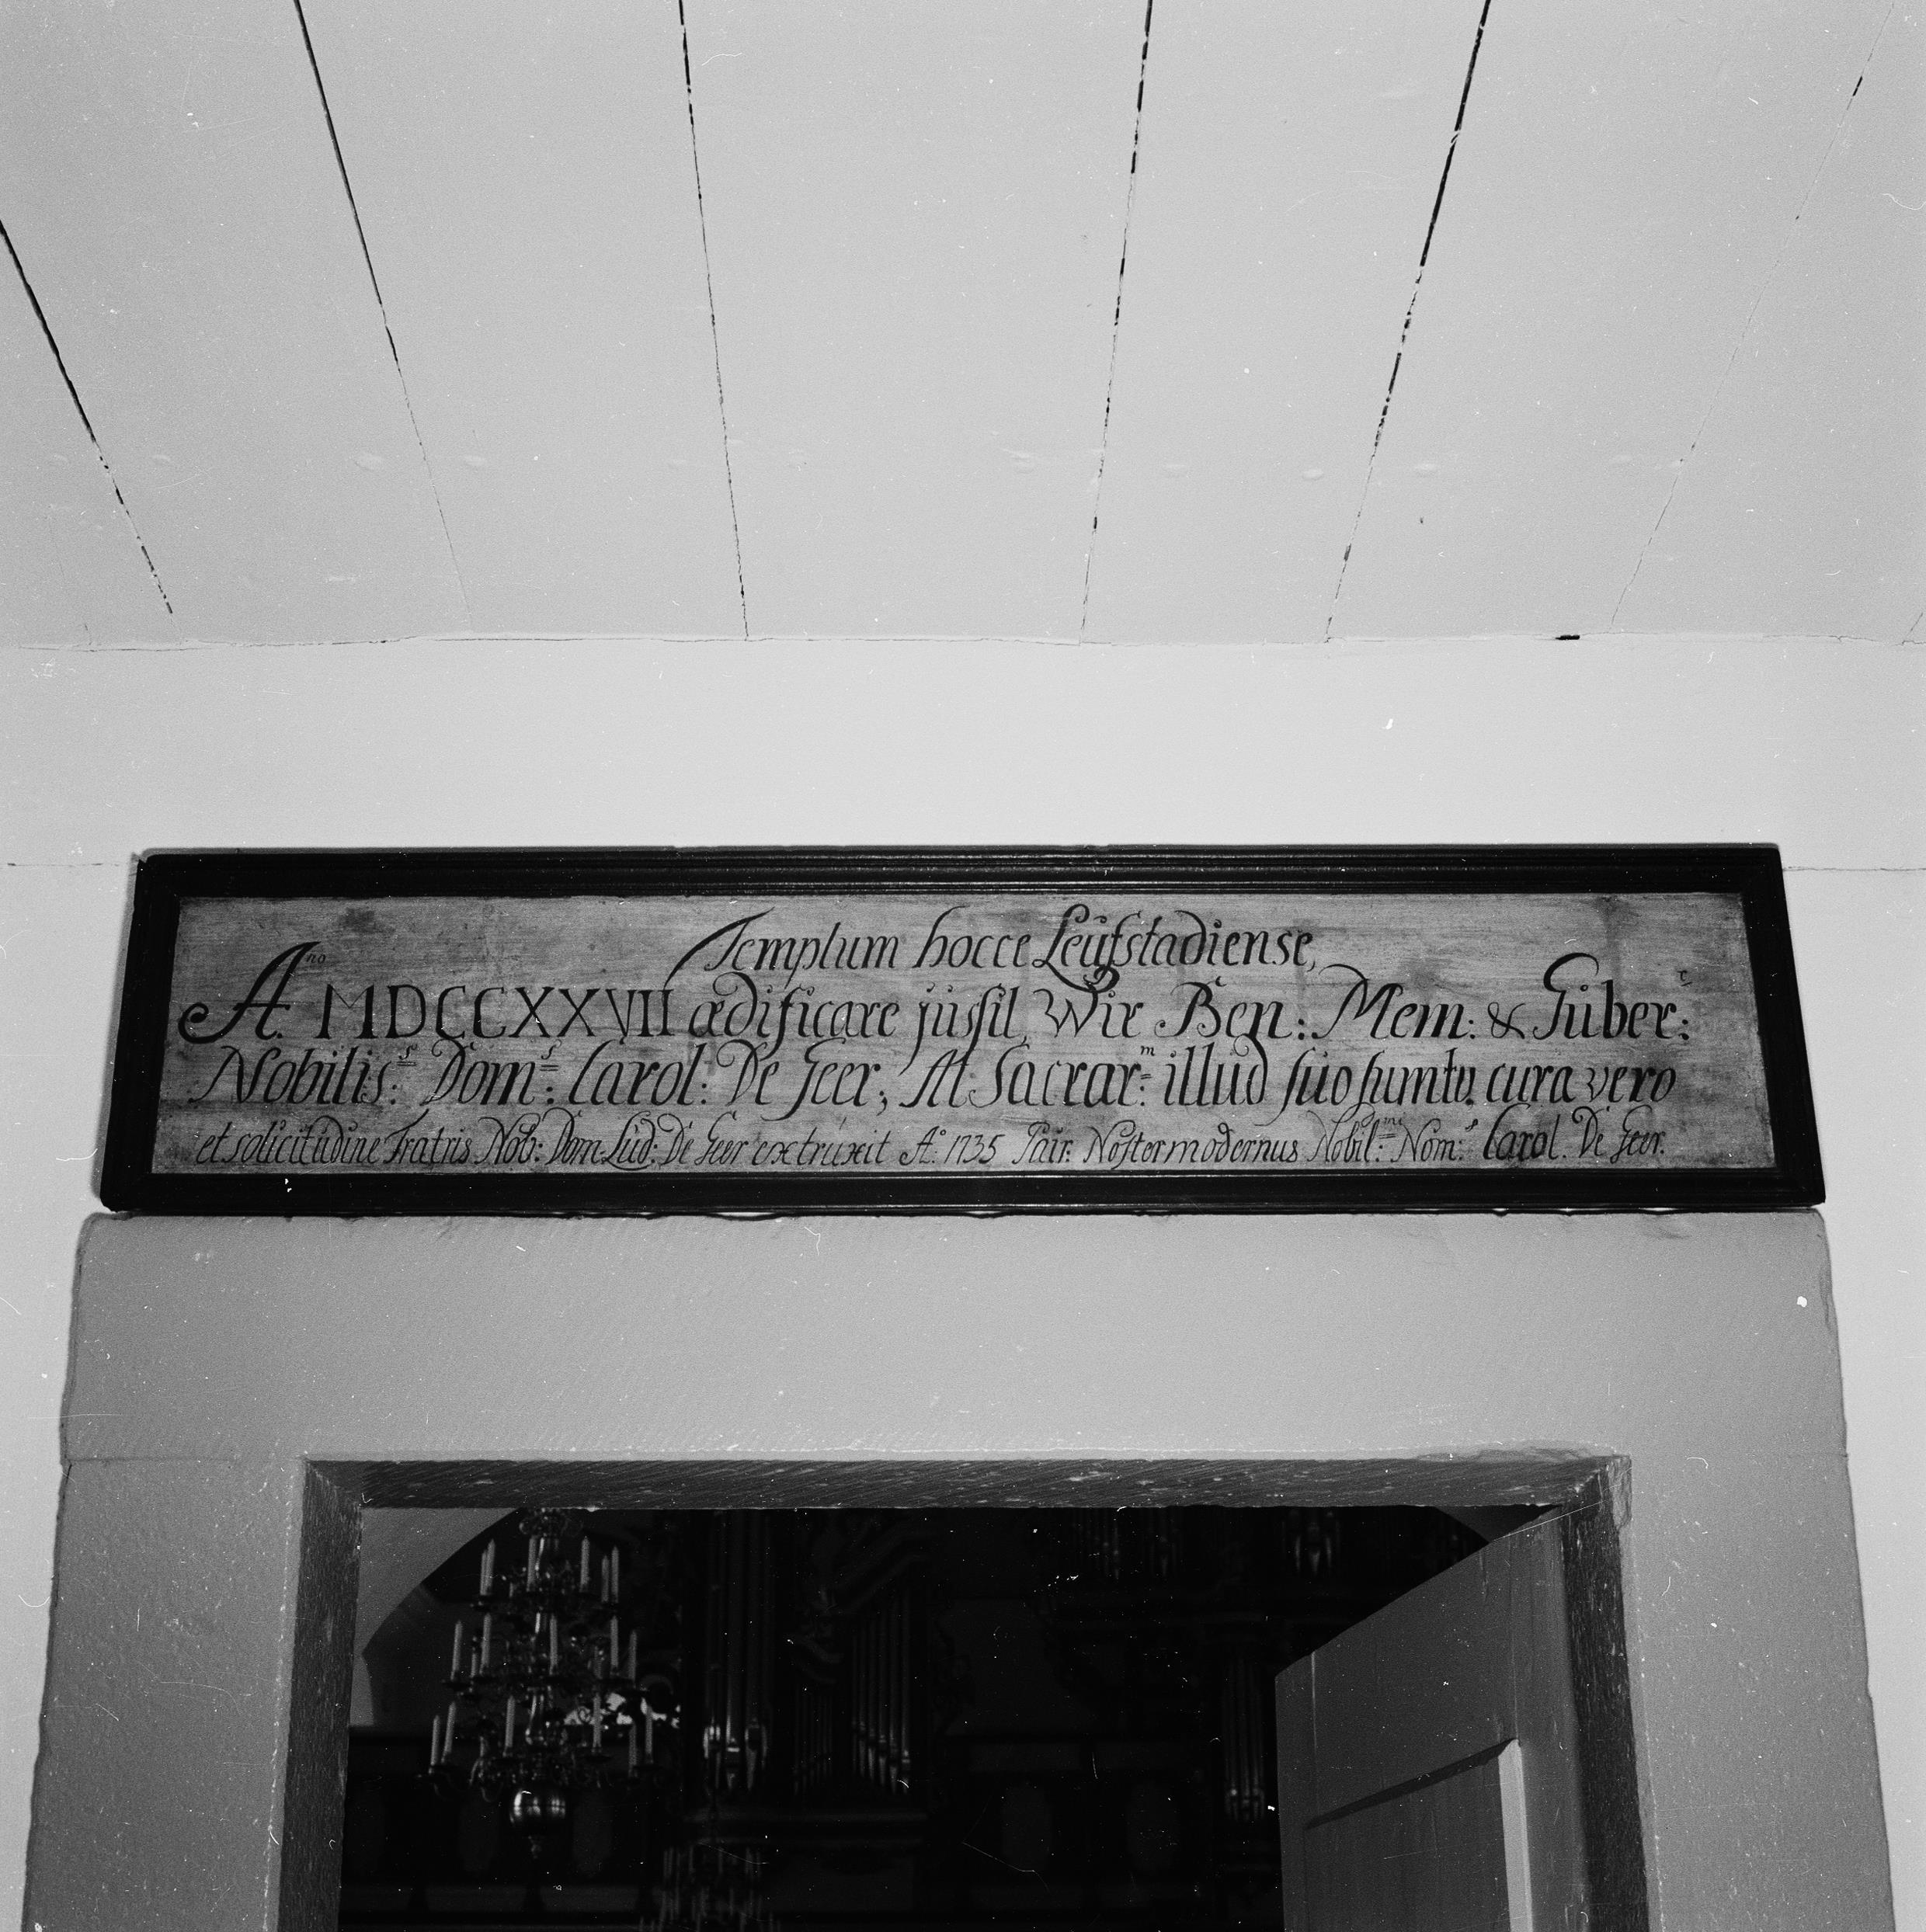 Templum hocce Leufstadiense,
A.no MDCCXXVII ædificare jussit Wir Ben: Mem: & Guber:r
Nobilis:s Dom:s Carol: De Geer; At Sacrar:m illud suo sumtu, cura vero
et solicitudine Fratris Nob: Dom. Lud: De Geer extruxit A:o 1735 Patr: Noster modernus Nobil:mus Nom:s Carol. De Geer.